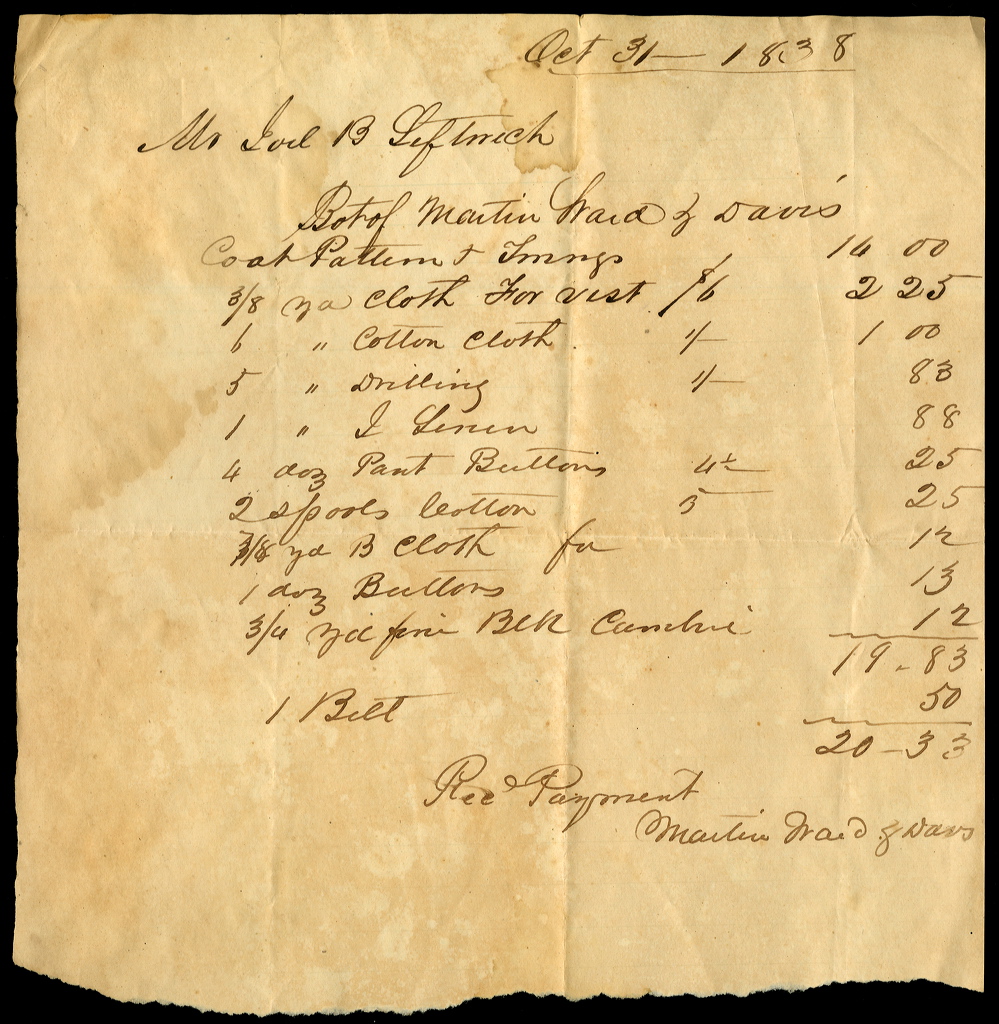 Oct 31 — 1838
Mr Joel B Leftwich
Bot of Martin Ward & Davis
Coat Pattern & Trmngs 14 00
3/8 yd Cloth For vest 2 25
6 " Cotton Cloth 1/— 1 00
5 " Drilling 1/— 83
1 " I Linen 88
4 doz Pant Buttons 25
2 spools Cotton 25
3/8 yd B Cloth for 12
1 doz Buttons 13
3/4 yd fine Blk Cambric 12
19 - 83
1 Belt 50
20 - 33
Recd Payment
Martin Ward & Davis